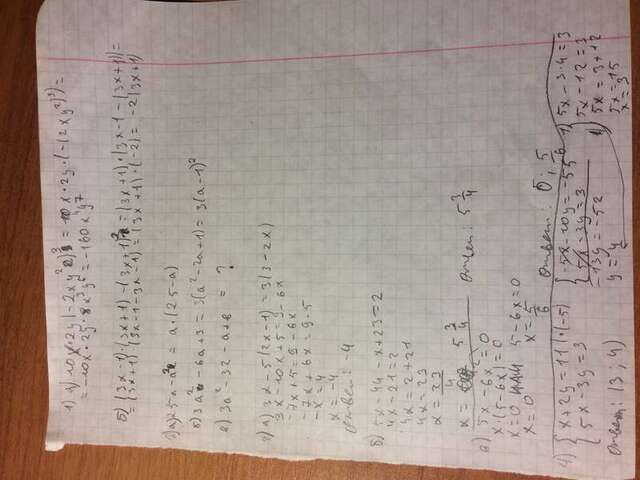 1) а) 10x · 2y (-2xy²)³ = 10x · 2y · (-(2xy²)³) =
= -10x · 2y · 8x³y⁶ = -160x⁴y⁷
б) = (3x-1)(3x+1) - (3x+1)² = (3x+1) · (3x-1 - (3x+1)) =
= (3x+1) (3x-1-3x-1) = (3x+1) · (-2) = -2(3x+1)
= a · (25-a)
б) 3a² - 6a + 3 = 3(a² - 2a + 1) = 3(a-1)²
в) 3a² - 32 - a + b = ?
а) 3x - 5(2x-1) = 3(3-2x)
3x - 10x + 5 = 9 - 6x
-7x + 5 = 9 - 6x
-7x + 6x = 9 - 5
-x = 4
x = -4
Ответ: -4
б) 5x - 44 - x + 23 = 2
4x - 21 = 2
4x = 2 + 21
4x = 23
x = 5 3/4 Ответ: 5 3/4
в) 5x - 6x² = 0
x · (5-6x) = 0
x = 0 или 5-6x = 0
x = 0 x = 5/6 Ответ: 0; 5/6
4) { x + 2y = 11 | · (-5) { -5x - 10y = -55
{ 5x - 3y = 3 { 5x - 3y = 3
-13y = -52
y = 4
5x - 3·4 = 3
5x - 12 = 3
5x = 3 + 12
5x = 15
x = 3
Ответ (3; 4)